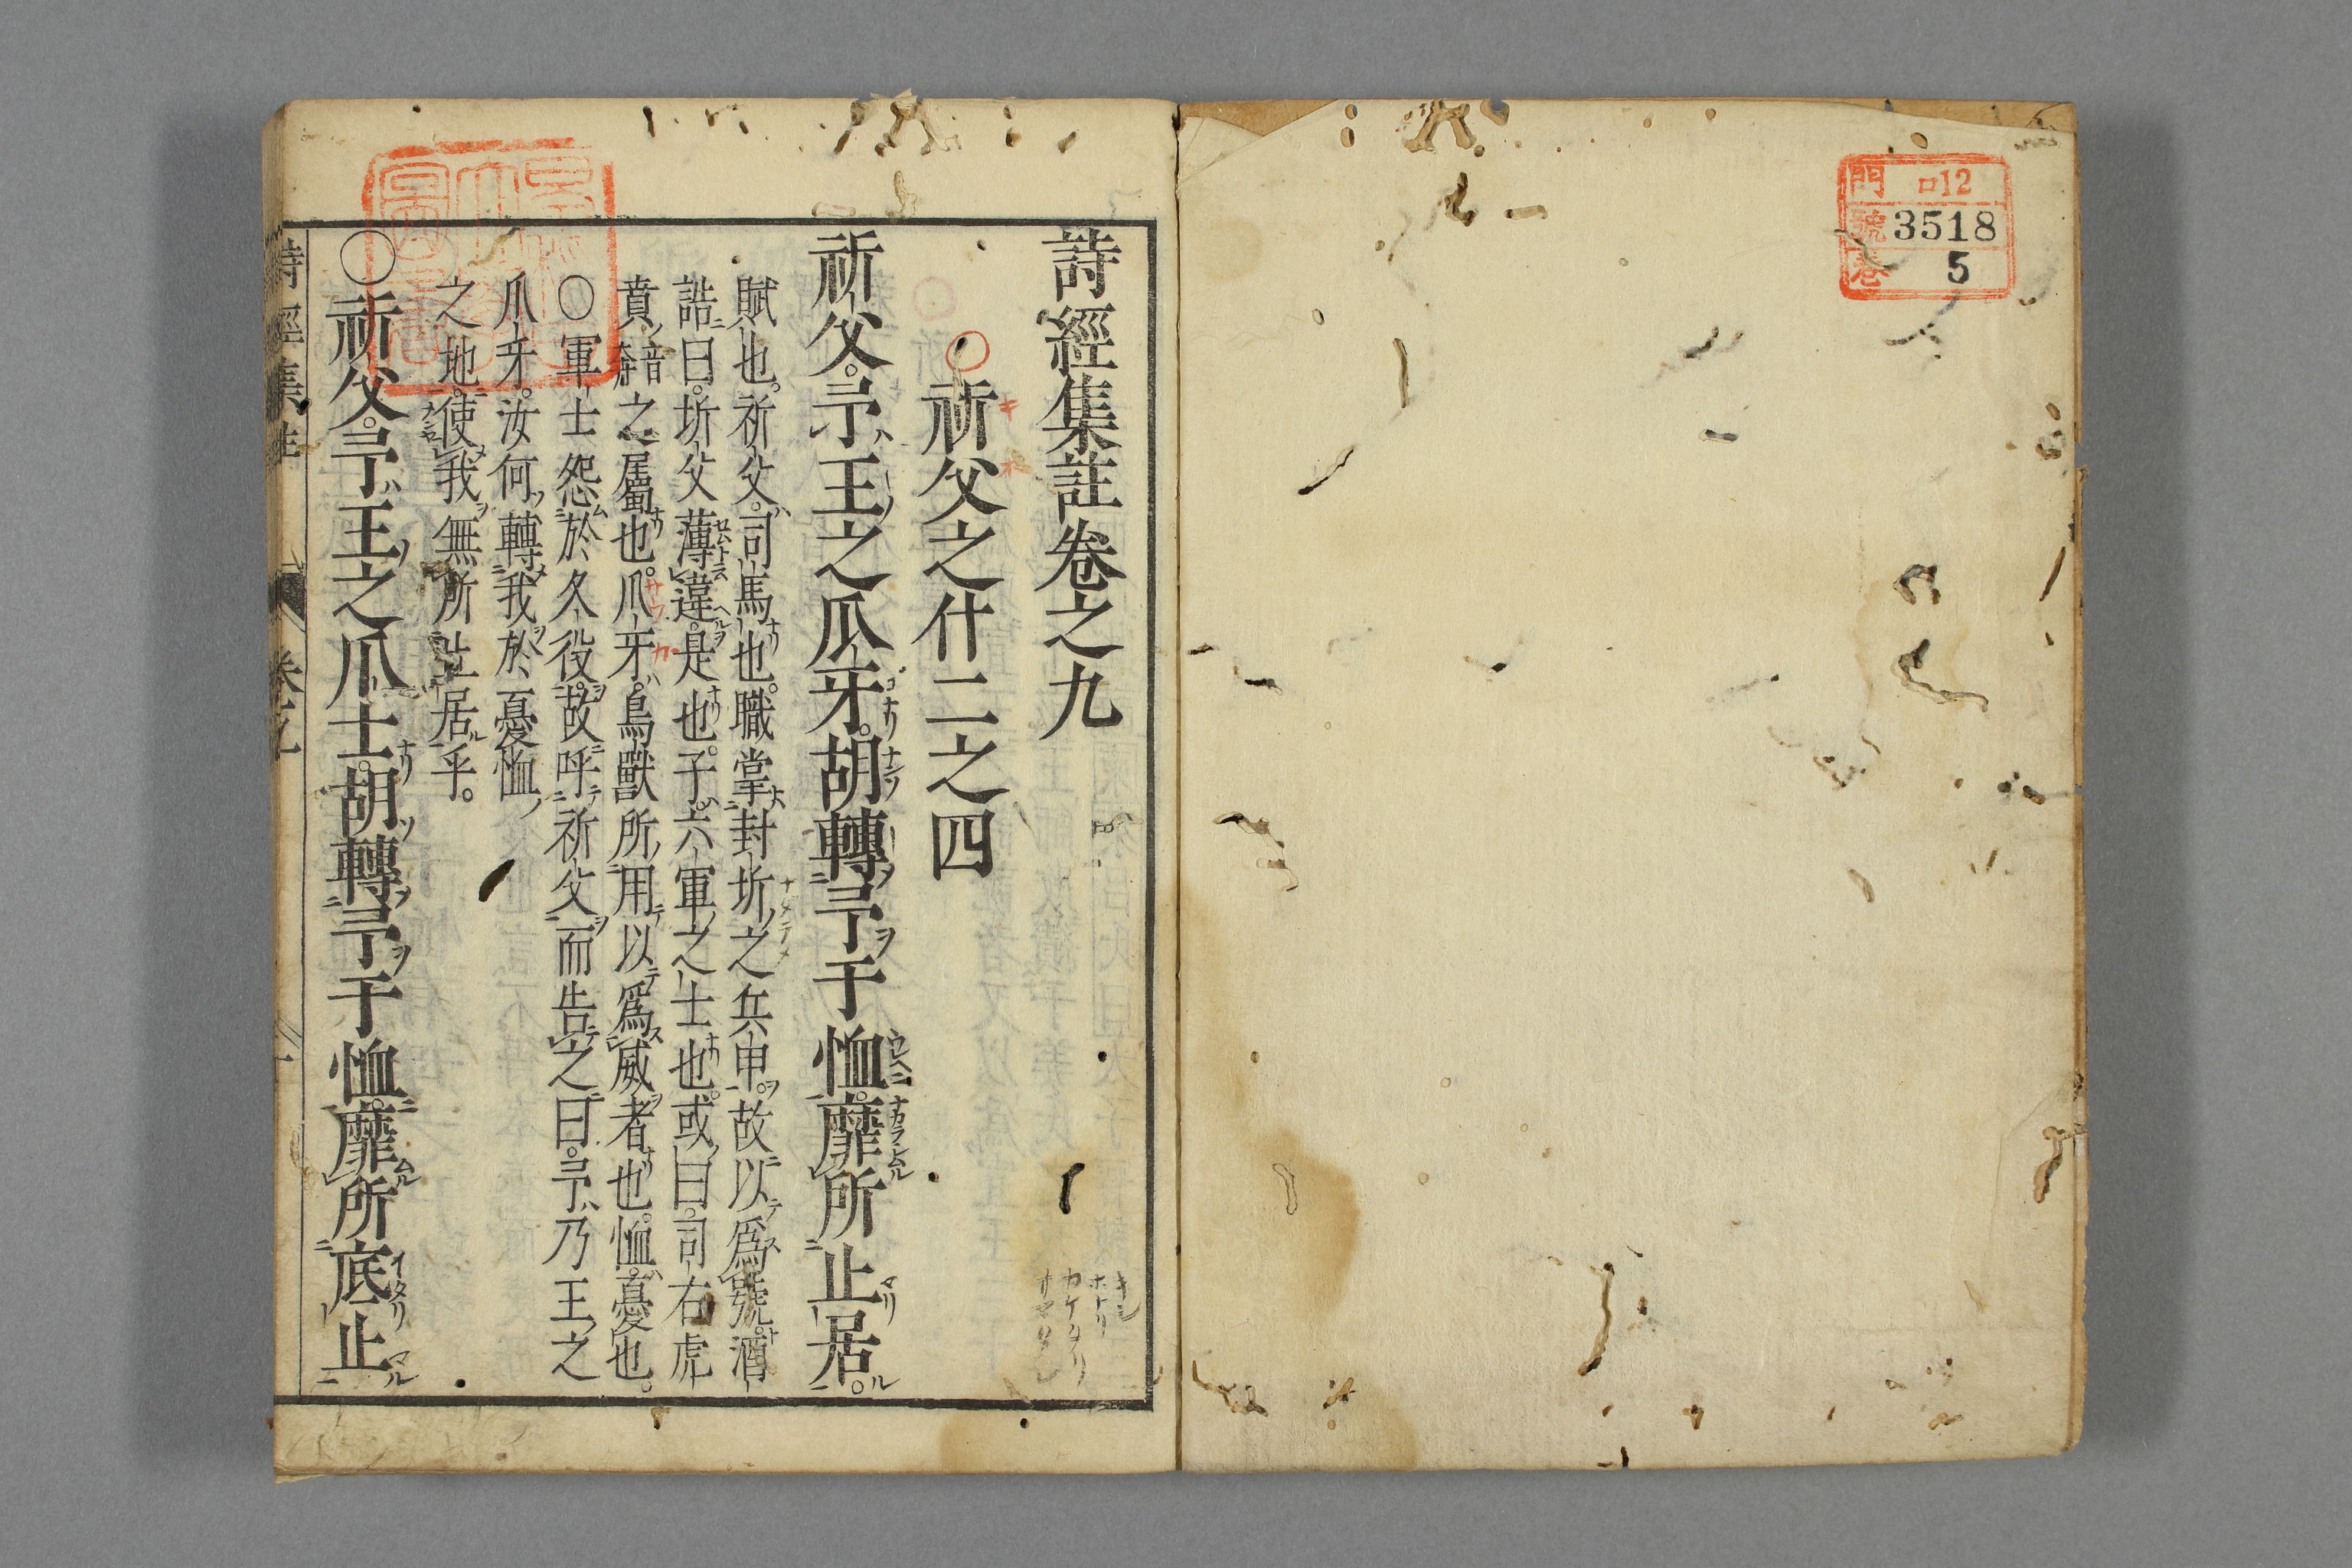 門 ロ12
號 3518
卷 5
詩經集註卷之九
○祈父之什二之四
祈父。予王之爪牙。胡轉予于恤。靡所止居。
賦也。祈父。司馬也。職掌封圻之兵甲。故以爲號。酒
誥曰。圻父薄違。是也。予。六軍之士也。或曰。司右虎
賁音奔之屬也。爪牙。鳥獸所用以爲威者也。恤。憂也。
○軍士怨於久役。故呼祈父而告之曰。予乃王之
爪牙。汝何轉我於憂恤
之地。使我無所止居乎。
○祈父。予王之爪士。胡轉予于恤。靡所底止
詩經集註